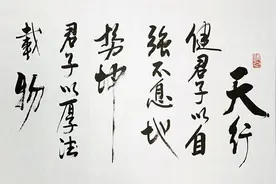 天行
健君子以自
強不息地
势坤
君子以厚法
載物